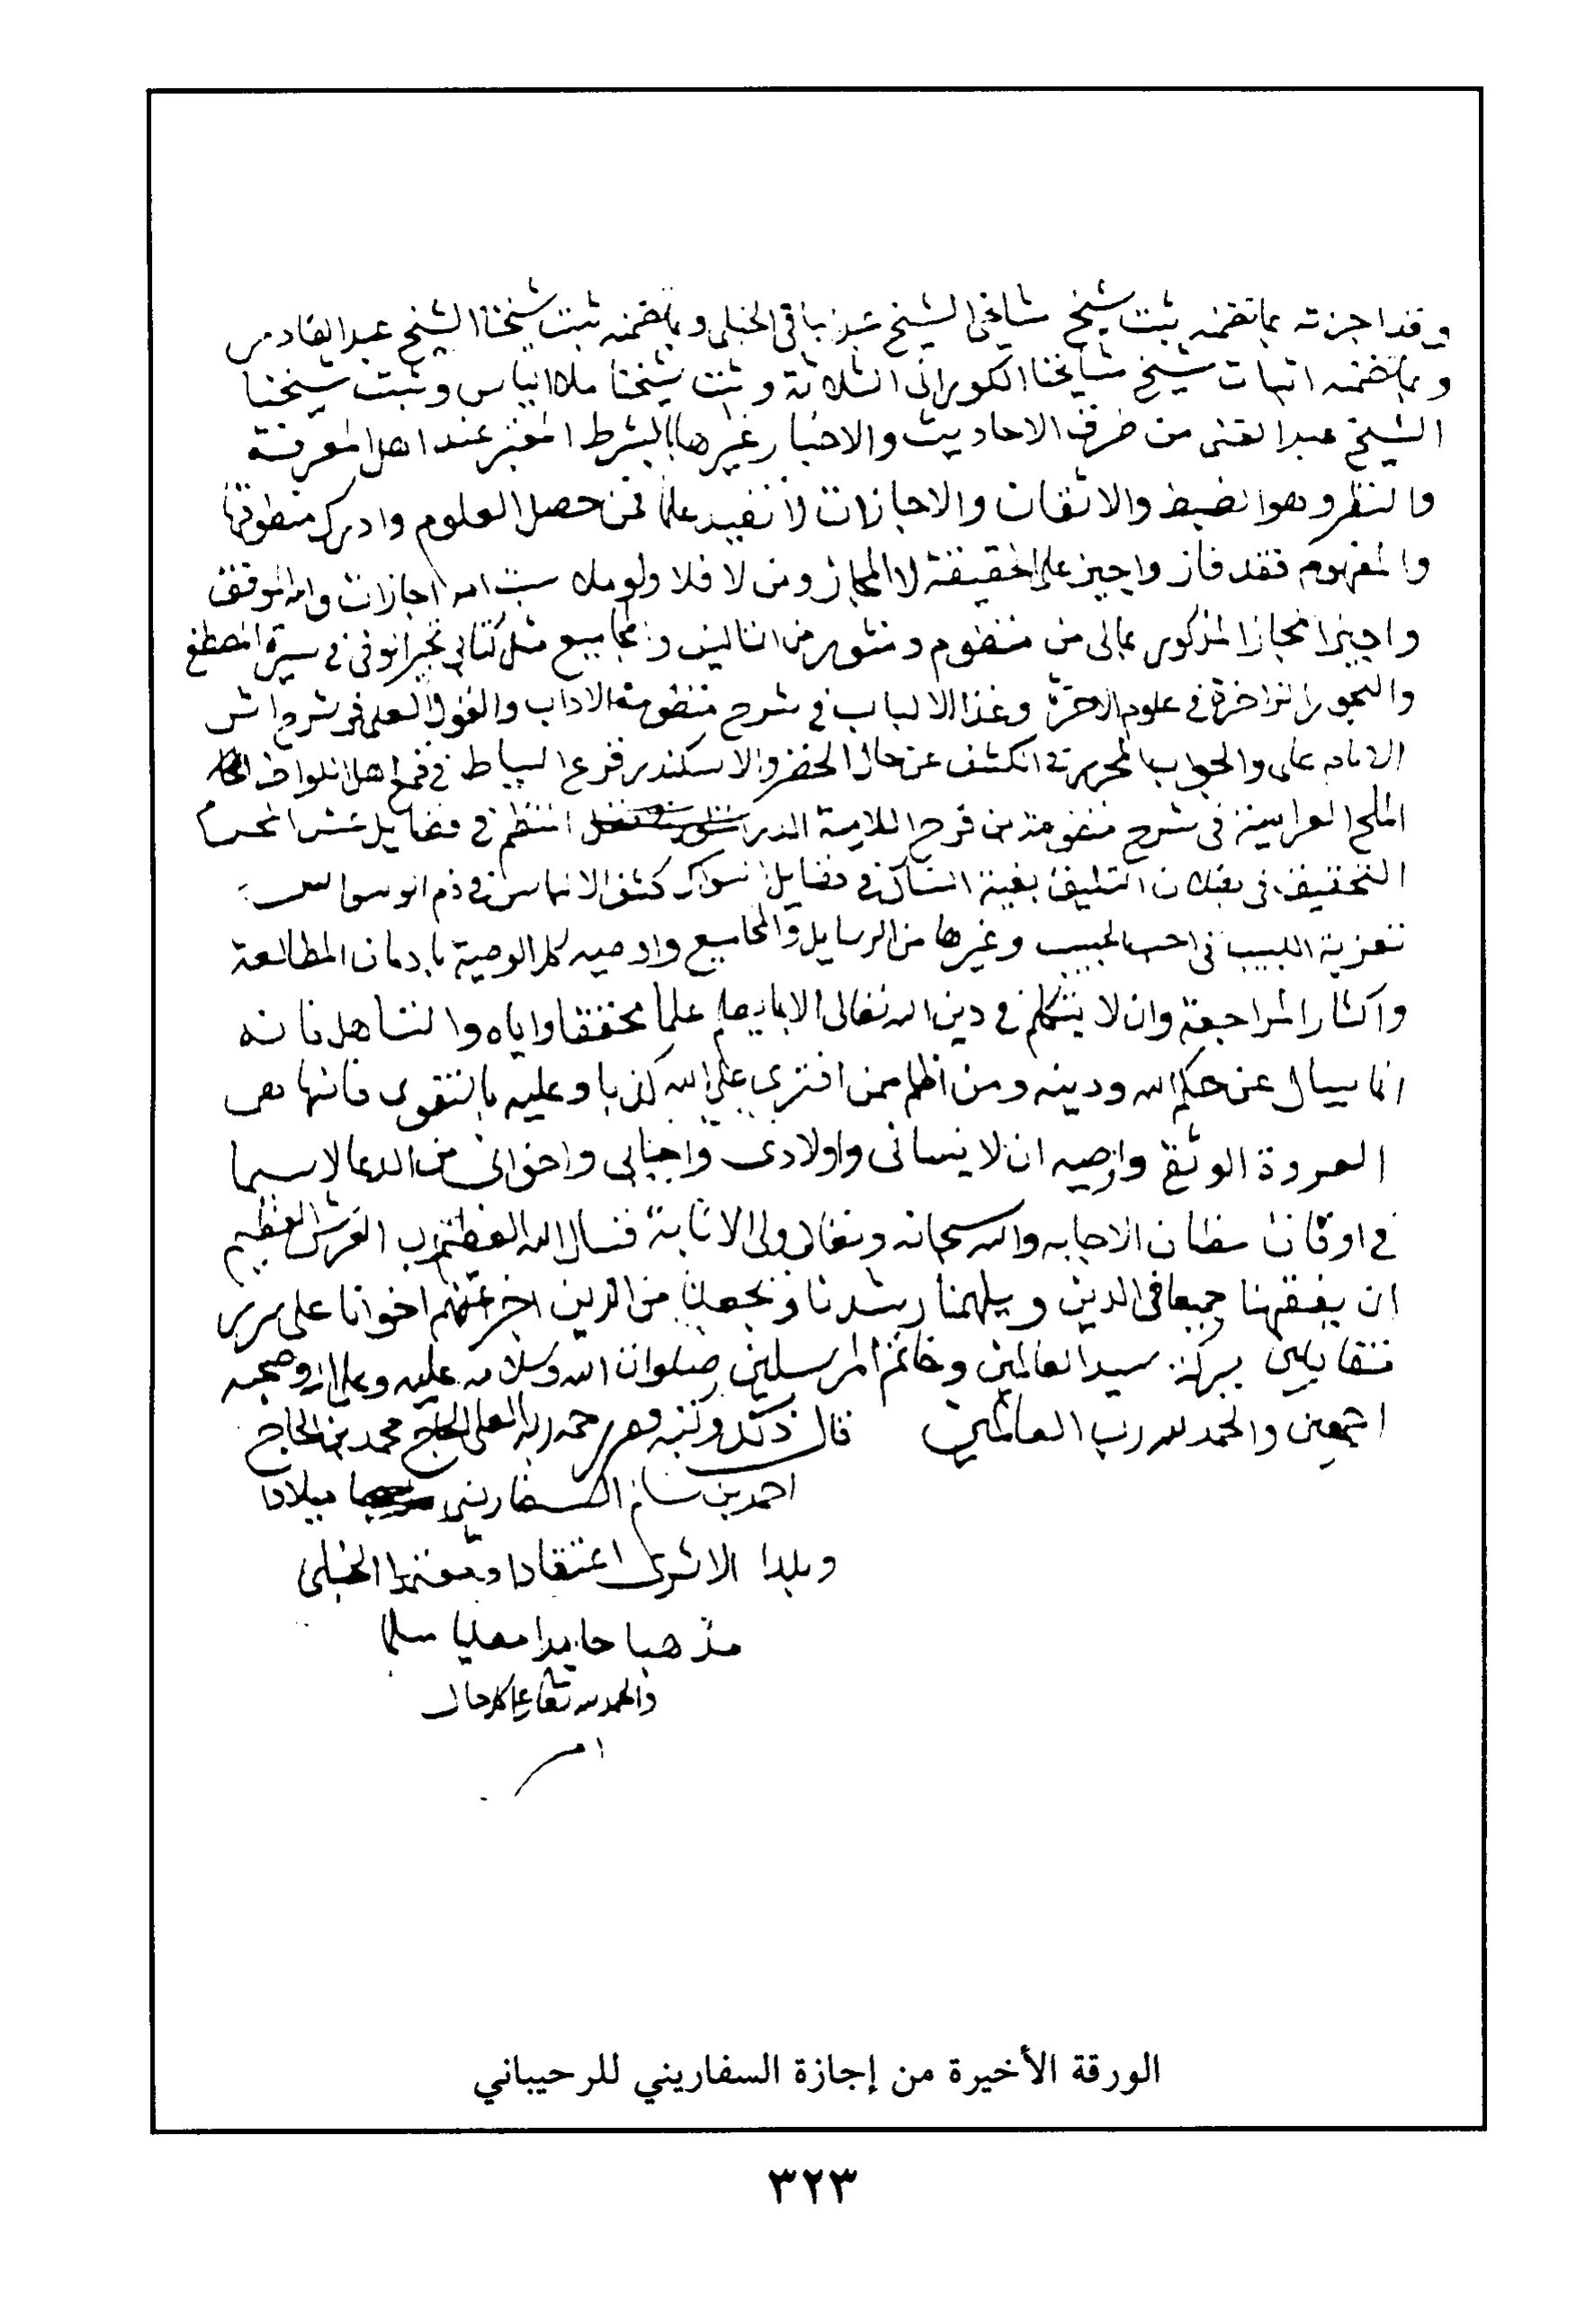 وقد اجزته بما تضمنه ثبت شيخ مشايخنا الشيخ عبد الباقي الحنبلي وبما تضمنه ثبت شيخنا الشيخ عبد القادر
وبما تضمنه اثبات شيخ مشايخنا الكوراني الثلاثة وثبت شيخنا ملا الياس وثبت شيخنا
الشيخ عبد الغني من طرف الاحاديث والاخبار وغيرها بالشرط المعتبر عند اهل المعرفة
والنظر وهو الضبط والاتقان والاجازات لا تفيد علما فمن حصل العلوم وادرك منطوقها
والمفهوم فقد فاز واجيز على الحقيقة لا المجاز ومن لا فلا ولو ملا اجازات والله الموفق
واجيز المجاز المذكور بمالي من منظوم ومنثور من التاليف والمجاميع مثل كتابي تحبير الوفي في سيرة المصطفى
والبحور الزاخرة في علوم الاخرة وغذا الالباب في شرح منظومة الاداب والقول العلي في شرح اثر
الامام علي والجواب المحرر في الكشف عن حال الخضر والاسكندر قرع السياط في قمع اهل اللواط
الملح الغرامية في شرح منظومة ابن فرح اللامية الدر المنظم في فضايل عشر المحرم
التحقيق في بطلان التلفيق بغية النساك في فضايل السواك كشف الالتباس في ذم الوسواس
تعزية اللبيب في احب الحبيب وغيرها من الرسايل والمجاميع واوصيه كل الوصية بادمان المطالعة
واكثار المراجعة وان لا يتكلم في دين الله تعالى الا بما يعلم علما محققا واياه والتساهل فانه
انما يسال عن حكم الله ودينه ومن اظلم ممن افترى على الله كذبا وعليه بالتقوى فانها هي
العروة الوثقى واوصيه ان لا ينساني واولادي واحبابي واخواني من الدعا لا سيما
في اوقات مظان الاجابه والله سبحانه وتعالى ولي الاثابة فنسال الله العظيم رب العرش العظيم
ان يفقهنا جميعا في الدين ويلهمنا رشدنا ويجعلنا من الذين اخوانا على سرر
متقابلين ببركة سيد العالمين وخاتم المرسلين صلوات الله وسلامه عليه وعلى اله وصحبه
اجمعين والحمد لله رب العالمين قال ذلك وكتبه فقير رحمة ربه العلي الحاج محمد بن الحاج
احمد بن سالم السفاريني ميلادا
وبلدا الاثري اعتقادا ومعتقدا الحنبلي
مذهبا حامدا مصليا مسلما
والحمد لله تعالى على كل حال
الورقة الأخيرة من إجازة السفاريني للرحيباني
٣٢٣